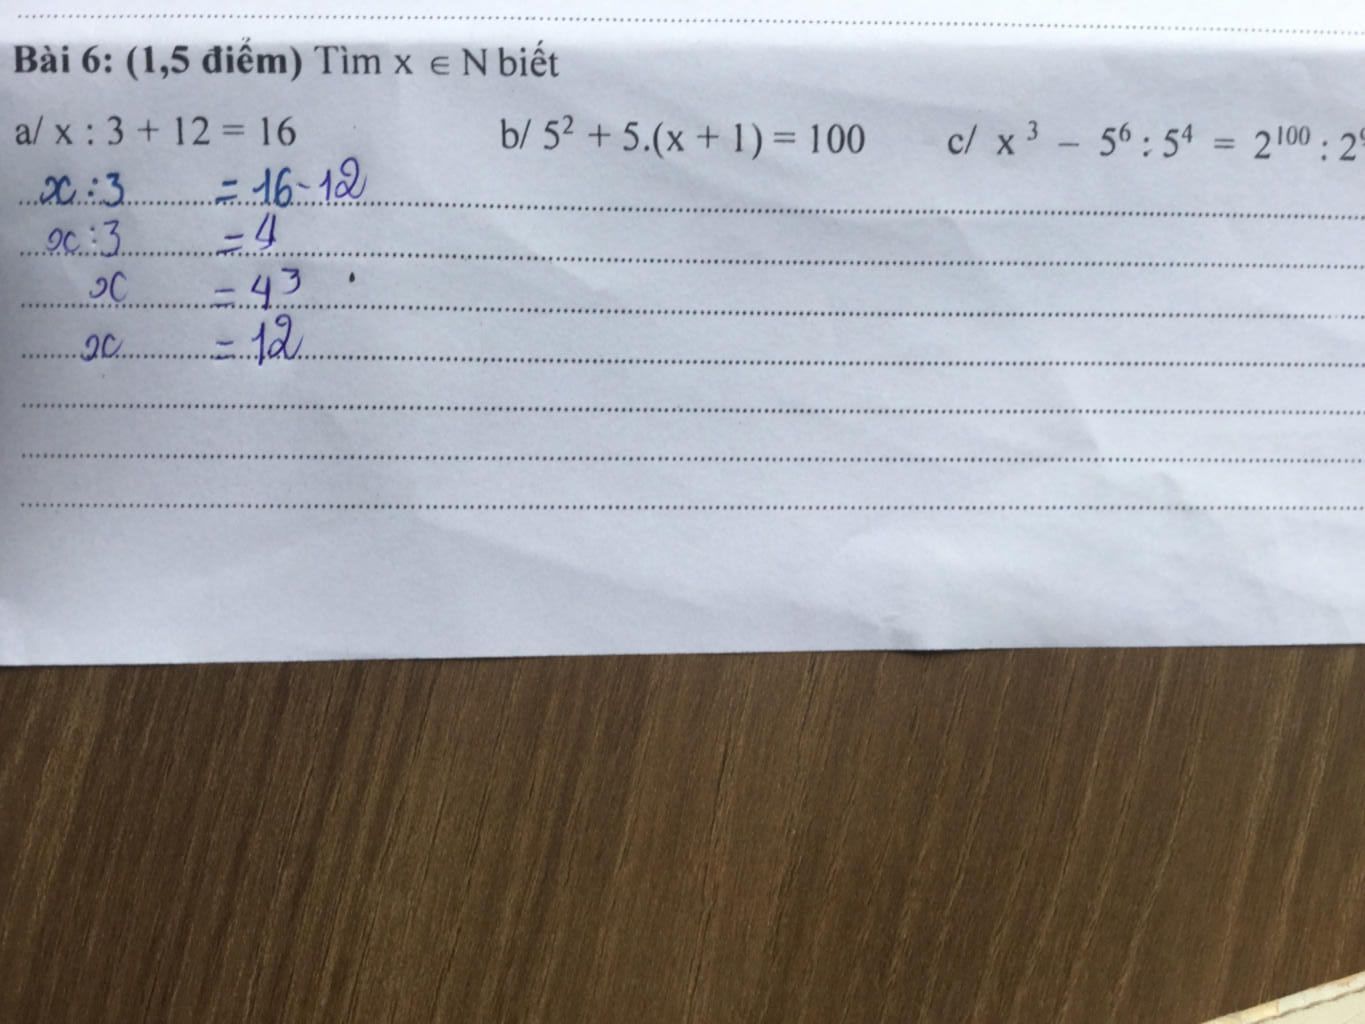 Bài 6: (1,5 điểm) Tìm x ∈ N biết
a/ x : 3 + 12 = 16 b/ 5² + 5.(x + 1) = 100 c/ x³ − 5⁶ : 5⁴ = 2¹⁰⁰ : 2⁹
x : 3 = 16 - 12
x : 3 = 4
x = 4³
x = 12